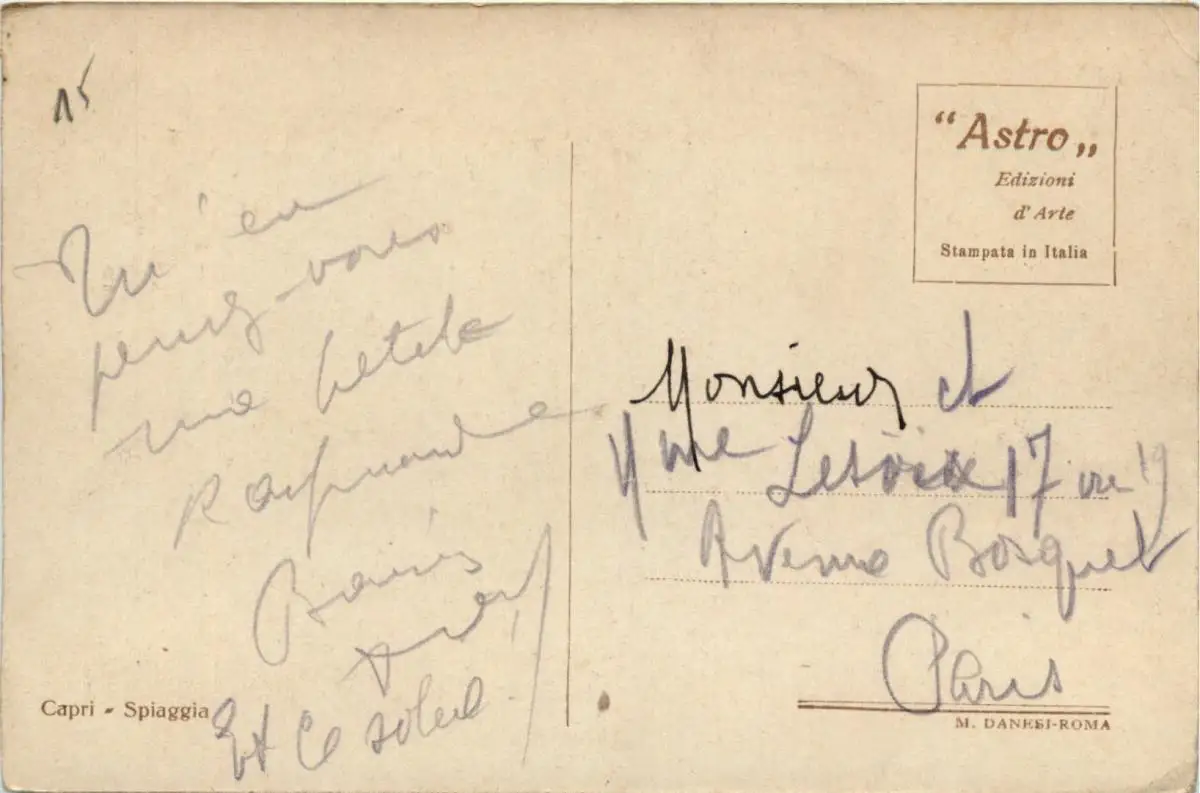 15
Qu'en
pensez-vous
une
"Astro„
Edizioni
d'Arte
Stampata in Italia
Monsieur et
Mme 17 ou 19
Avenue Bosquet
Paris
Capri - Spiaggia
Et Ce soleil!
M. DANESI-ROMA